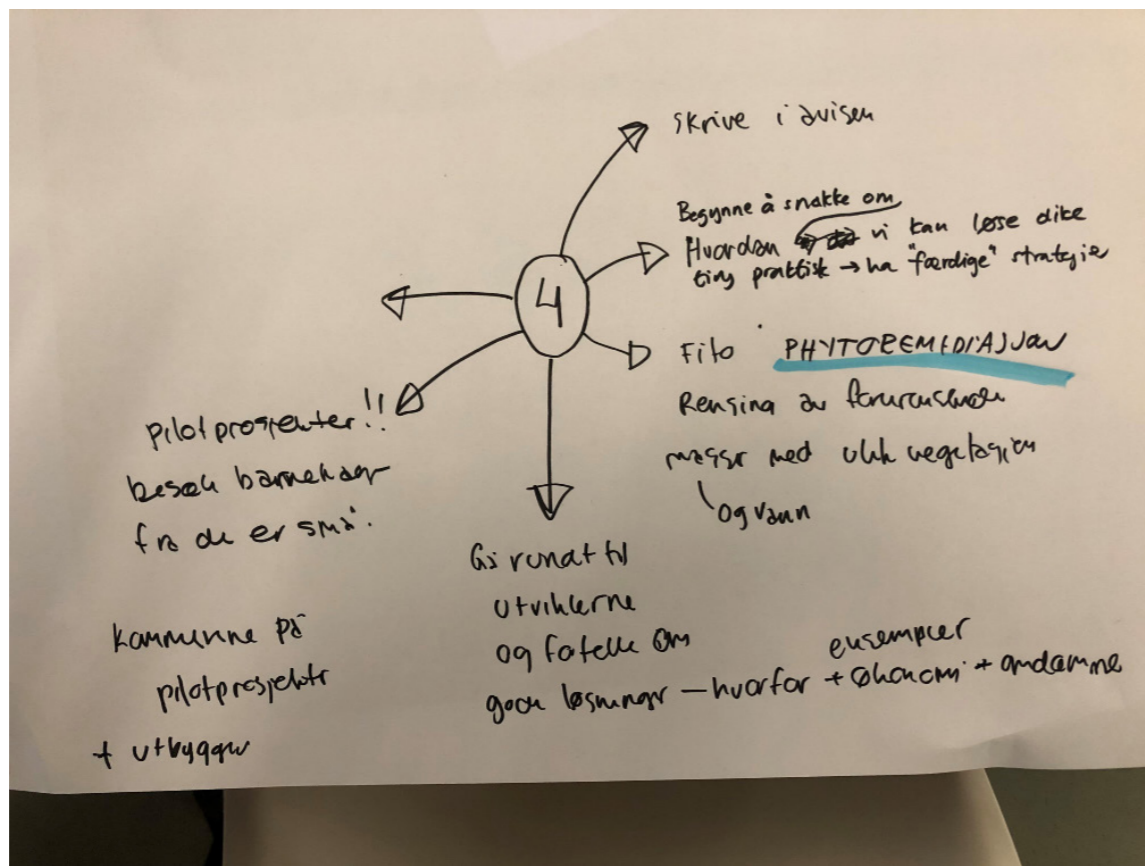 skrive i avisen
Begynne å snakke om
Hvordan vi kan løse slike
ting praktisk → ha "færdige" strategie
4
Fito PHYTOREMEDIASJON
Rensing av forurensende
masser med ulik vegetasjon
og vann
pilotprosjekter!!
besøk barnehager
fra de er små.
Gå rundt til
utviklerne
og fortelle om
gode løsninger — hvorfor + økonomi + omdømme
eksempler
kommunene på
pilotprosjektr
+ utbygger